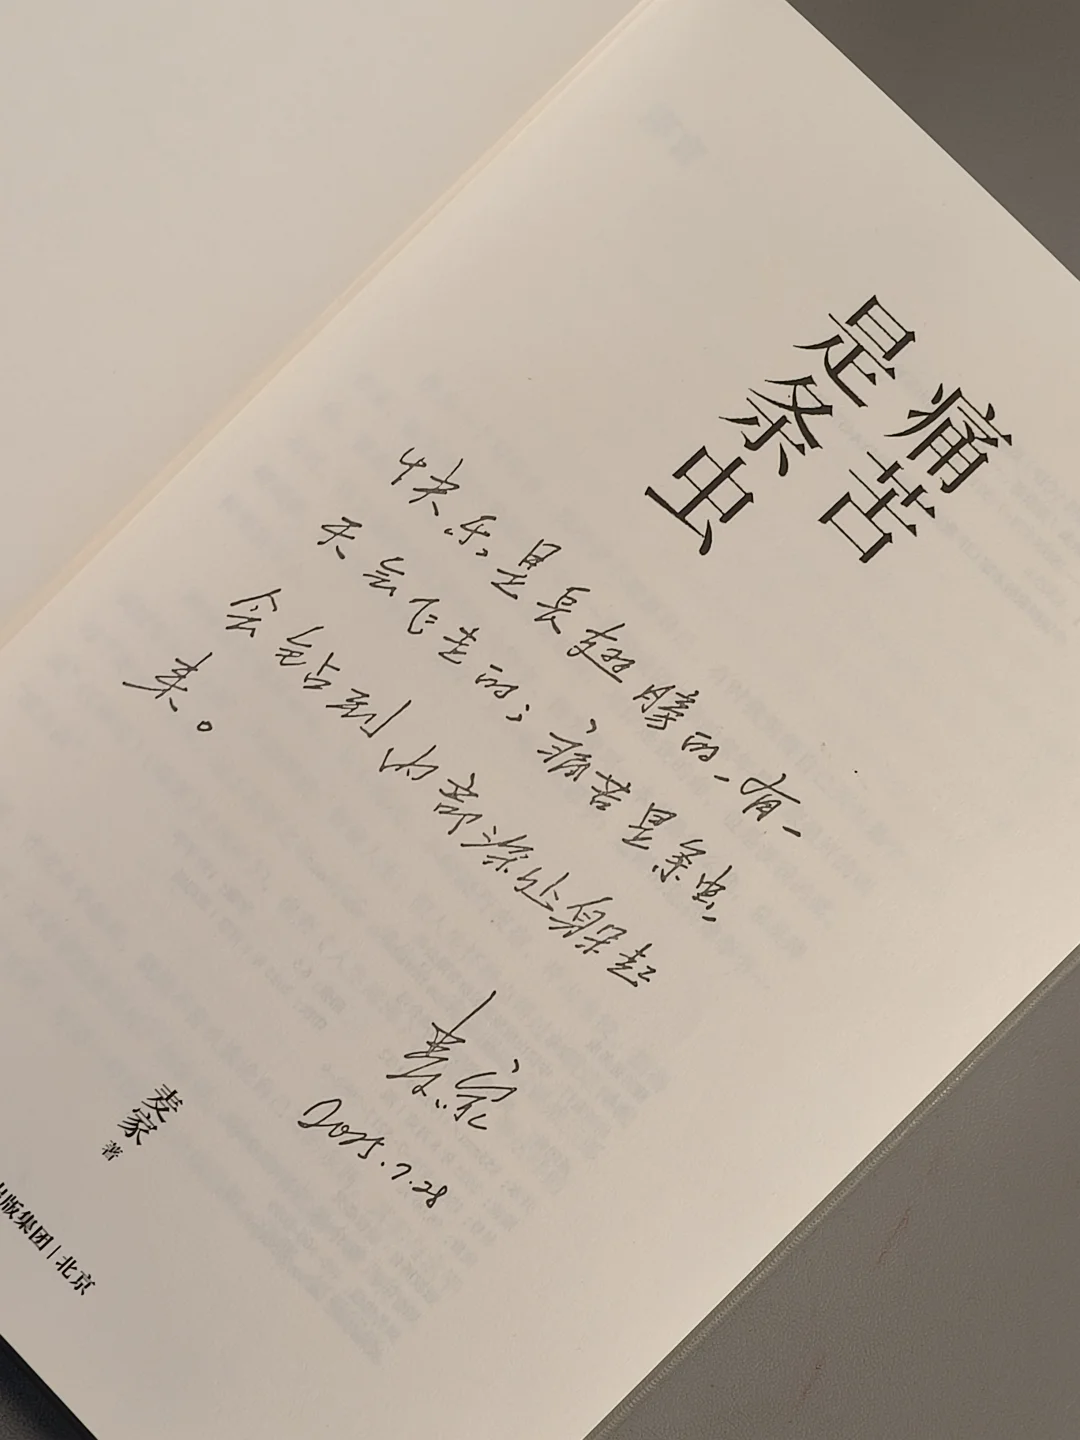 痛苦
是条虫
快乐是长翅膀的，有一
天会飞走的；痛苦是条虫，
会钻到内部深处躲起
来。
麦家
2025.7.28
麦家 著
出版集团 | 北京